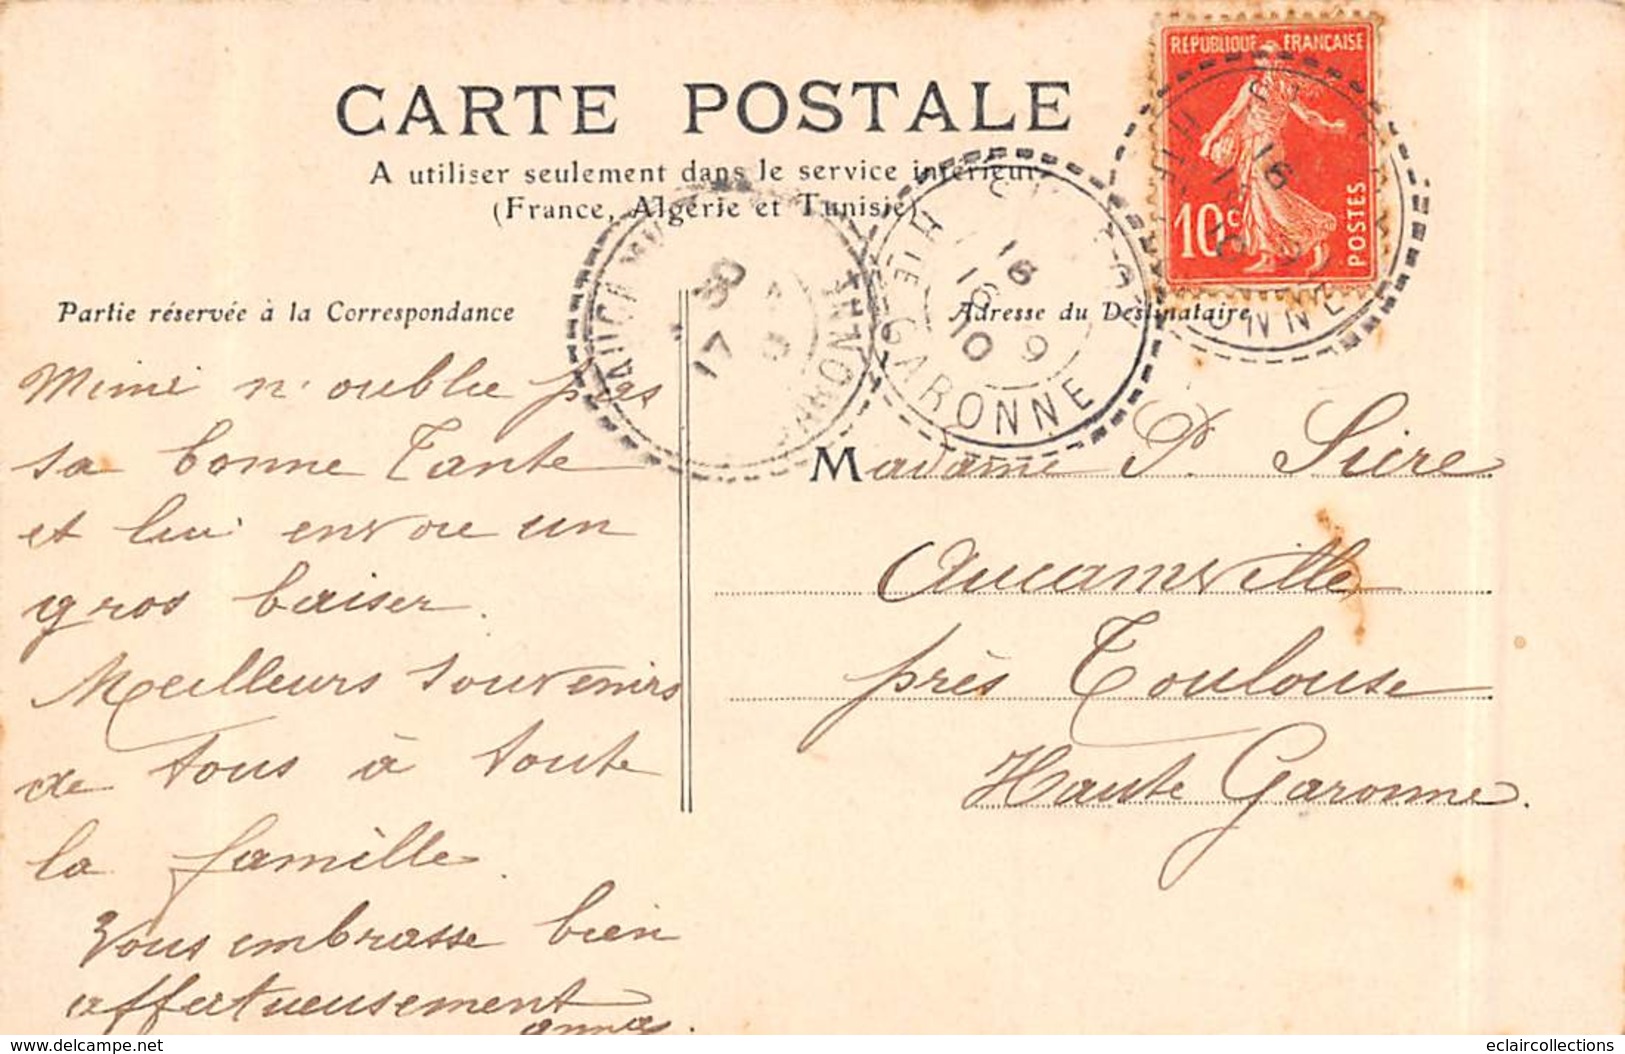 CARTE POSTALE
A utiliser seulement dans le service intérieur
(France, Algérie et Tunisie)
REPUBLIQUE FRANÇAISE
10c
POSTES
16
16 9
10
HTE-GARONNE
30
17 9
GARONNE
Partie réservée à la Correspondance
Mimi n'oublie pas
sa bonne Tante
et lui envoie un
gros baiser.
Meilleurs souvenirs
de tous à toute
la famille.
Vous embrasse bien
affectueusement
Adresse du Destinataire
Madame P. Sicre
Aucamville
près Toulouse
Haute Garonne.
www.delcampe.net
eclaircollections